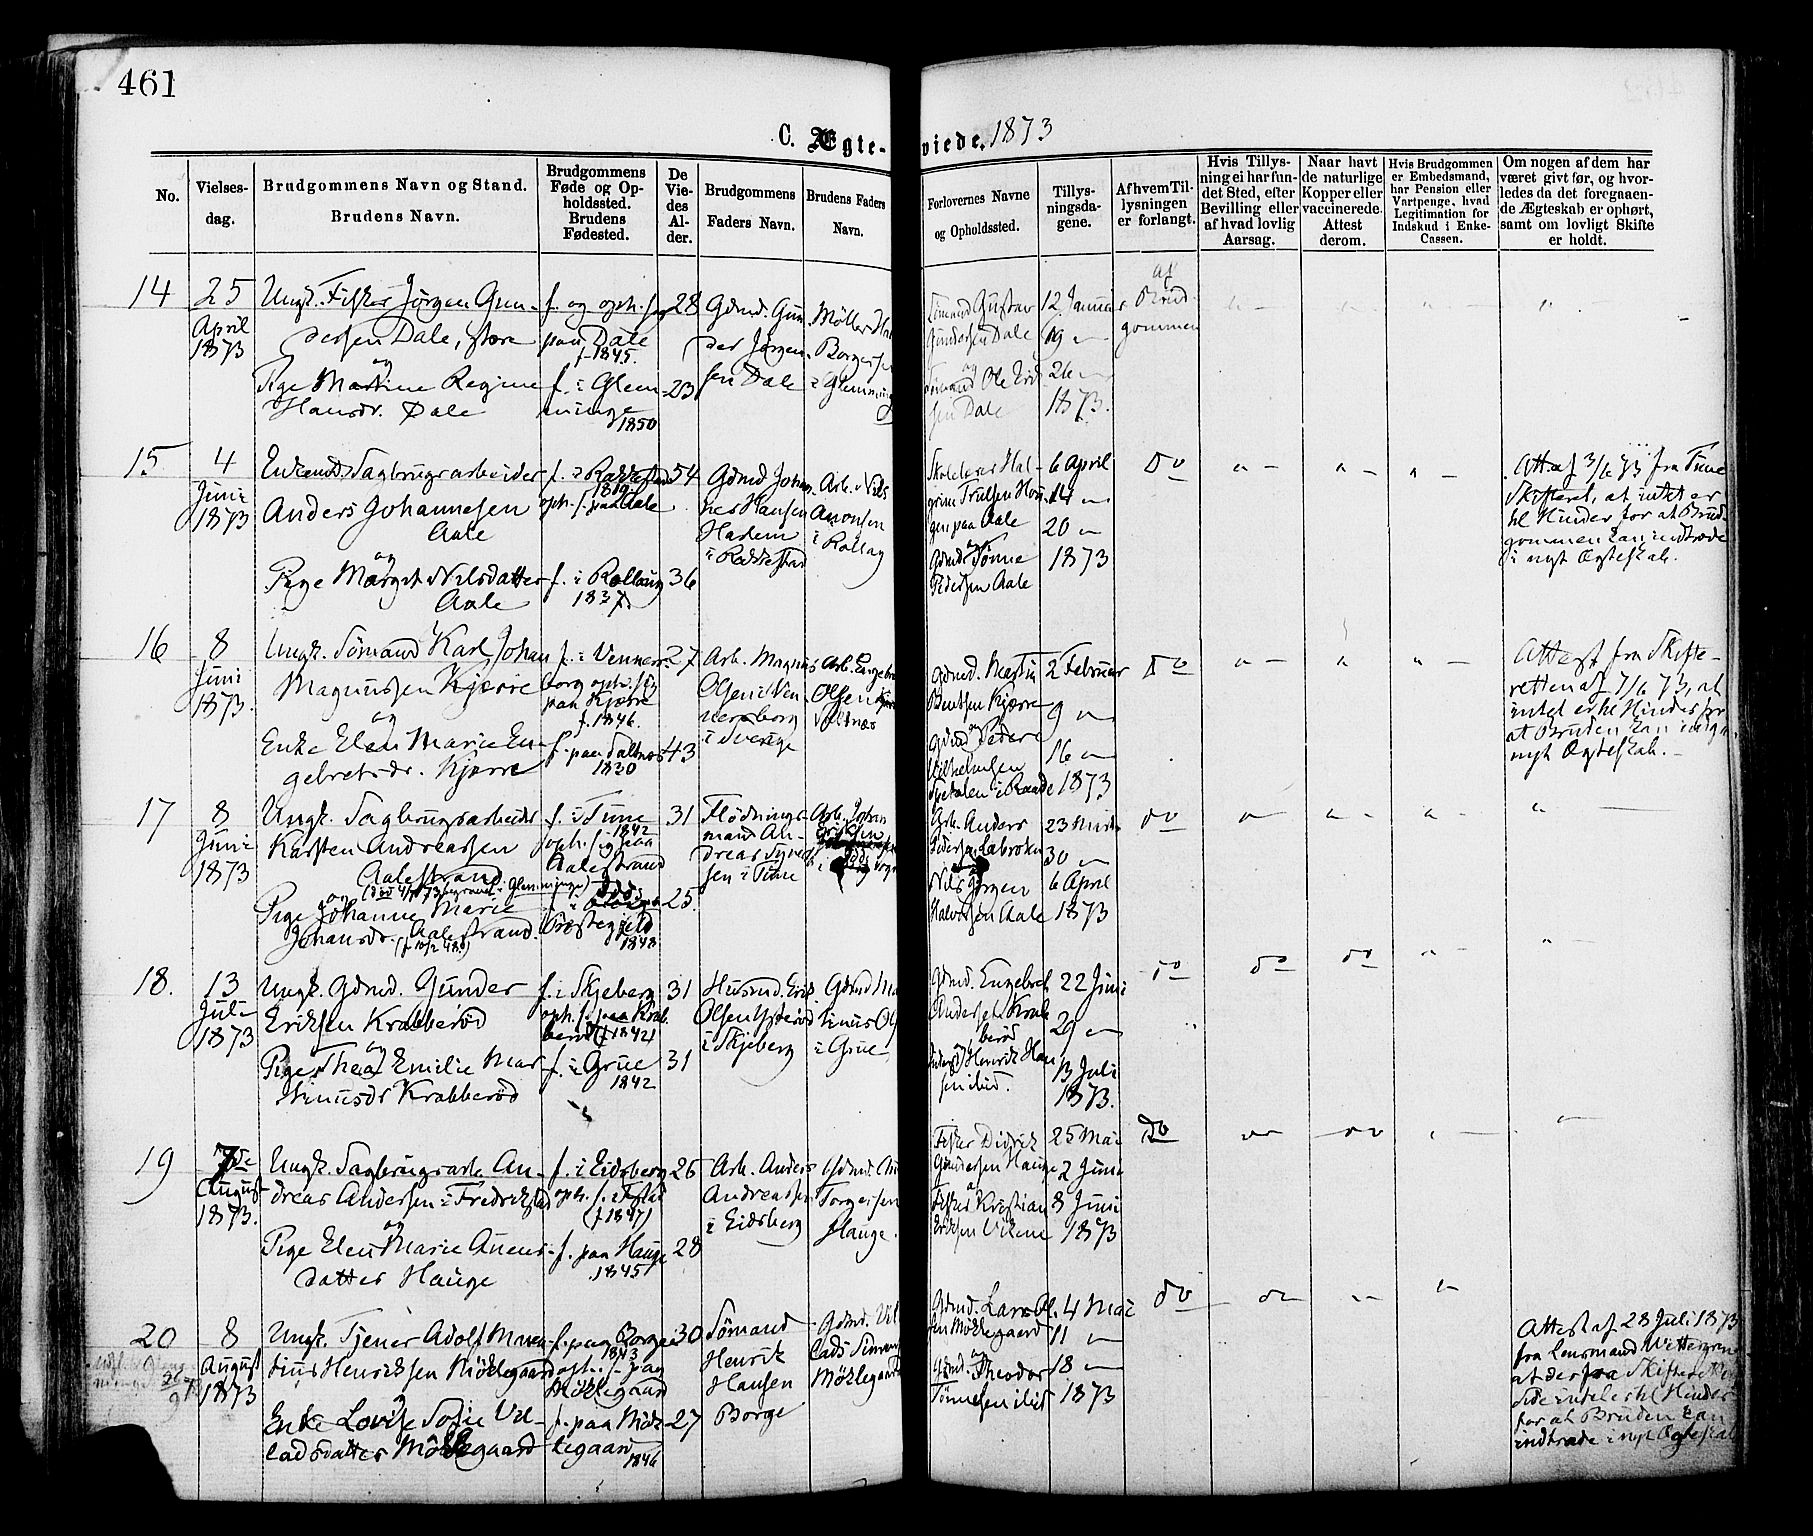 461
C. Ægte-viede. 1873
No.
Vielses-
dag.
Brudgommens Navn og Stand.
Brudens Navn.
Brudgommens
Føde og Op-
holdssted.
Brudens
Fødested.
De
Vie-
des
Al-
der.
Brudgommens
Faders Navn.
Brudens Faders
Navn.
Forlovernes Navne
og Opholdssted.
Tillys-
ningsda-
gene.
Af hvem Til-
lysningen
er forlangt.
Hvis Tillys-
ning ei har fun-
det Sted, efter
Bevilling eller
af hvad lovlig
Aarsag.
Naar havt
de naturlige
Kopper eller
vaccinerede.
Attest
derom.
Hvis Brudgommen
er Embedsmand,
har Pension eller
Vartpenge, hvad
Legitimation for
Indskud i Enke-
Cassen.
Om nogen af dem har
været givt før, og hvor-
ledes da det foregaaen-
de Ægteskab er ophørt,
samt om lovligt Skifte
er holdt.
14
25
April
1873
Ungk. Fisker Jørgen Gun-
dersen Dale, store
og
Pige Martine Regine
Hansdr. Dale
f. og oph. sig
paa Dale
f. 1845.
f. i Glem-
minge
1850
28
23
Gdmd. Gun-
der Jørgen-
sen Dale
Møller Han
Borgersen
i Glemminge
Sømand Gustav
Gundersen Dale
og
Sømand Ole Erik-
sen Dale
12 Januar
19 "
26 "
1873.
af
Brud-
gommen
15
4
Juni
1873
Enkemd. Sagbrugsarbeider
Anders Johannesen
Aale
og
Pige Marget Nilsdatter
Aale
f. i Rakkestad
1819
oph. s. paa Aale
f. i Rollaug
1837
54
36
Gdmd Johan-
nes Hansen
Harlem
i Rakkestad
Arb. Nils
Amonsen
i Rollag
Skolelærer Hal-
grim Trulsen Hou-
gen paa Aale
og
Gdmd Tønne
Pedersen Aale
6 April
14 "
20 "
1873
Do
Att af 3/6 73 fra Tune
Skifteret, at intet er
til Hinder for at Brud-
gommen kan indtræde
i nyt Ægteskab.
16
8
Juni
1873.
Ungk. Sømand Karl Johan
Magnussen Kjærre
og
Enke Elen Marie En-
gebretsdr. Kjærre
f. i Venners-
borg oph. sig
paa Kjærre
f. 1846.
f. paa Saltnæs
1830
27
43
Arb. Magnus
Olsen i Ven-
nersborg
i Sverige
Arb. Engebr
Olsen
Saltnæs
Gdmd. Martin
Bentsen Kjærre
og
Gdmd Peder
Vilhelmsen
i Raade
2 Februar
9 "
16 "
1873
Do
Attest fra Skifte-
retten af 7/6 73, at
intet er til Hinder for
at Bruden kan indgaa
nyt Ægteskab.
17
8
Juni
1873
Ungk. Sagbrugsarbeider
Karsten Andreassen
Aalestrand
og
Pige Johanne Marie
Johansdr. Aalestrand.
f. i Tune
1842
oph. sig paa
Aalestrand
Præstegjeld
1848
31
25
Flødnings-
mand An-
dreas Syvert-
sen i Tune
Arb. Johan
Eriksen
Arb. Anders
Pedersen Labroken
og
Nils Jørgen
Halvorsen Aale
23 Marts
30 "
6 April
1873
Do
18.
13
Juli
1873
Ungk. Gdmd. Gunder
Eriksen Krabberød
og
Pige Thea Emilie Mar-
tinusdr Krabberød
f. i Skjeberg
oph. s. paa Krab-
berød (f 1842)
f. i Grue
1842
31
31
Husmd. Erik
Olsen Isterød
i Skjeberg
Gdmd Mar
tinus Ols
i Grue
Gdmd. Engebret
Andersen Krab-
berød
og
Henrik Han-
sen ibid.
22 Juni
29 "
13 Juli
1873.
Do
Do
Do
19
7de
August
1873.
Ungk. Sagbrugsarb. An-
dreas Andersen i Fredrikstad
og
Pige Elen Marie Auens-
datter Hauge
f. i Eidsberg
oph. s. i F.stad
(f 1847)
f. paa Hauge
1845
26
28
Arb. Anders
Andreassen
i Eidsberg
Gdmd. Au
Torgersen
Hauge.
Fisker Didrik
Gundersen Hauge
og
Fisker Kristian
Eriksen Vikene
25 Mai
2 Juni
8 Juni
1873
Do
20
8
August
1873
Ungk. Tjener Adolf Maren-
tius Henriksen Møklegaard
og
Enke Lovise Sofie Vil-
ladsdatter Møklegaard
f. paa Borge
1843
oph. s. paa
Møklegaard
f. paa Møk-
legaard
1846
30
27
Sømand
Henrik
Hansen
Borge
Gdmd. Vil
lads Simon
Møklegaard
Gdmd. Lars Ol-
sen Møklegaard
og
Gdmd. Theodor
Tønnesen ibid
4 Mai
11 "
18 "
1873
Do
Attest af 28 Juli 1873
fra Lensmand Wettergren
at der fra Skifterettens
Side intet er til Hinder
for at Bruden kan
indtræde i nyt Ægteskab